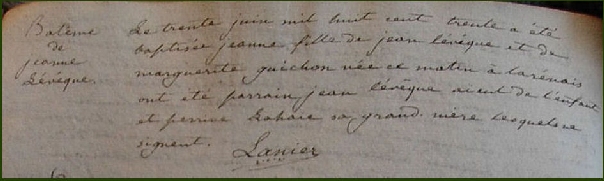 Batême
de
jeanne
Levêque.
Le trente juin mil huit cent trente a été
baptisée jeanne fille de jean levêque et de
marguerite guéchon née ce matin à
ont été parrain jean levêque aieul de l'enfant
et perrine Lahaie sa grand-mère lesquels ne
signent.
Lanier